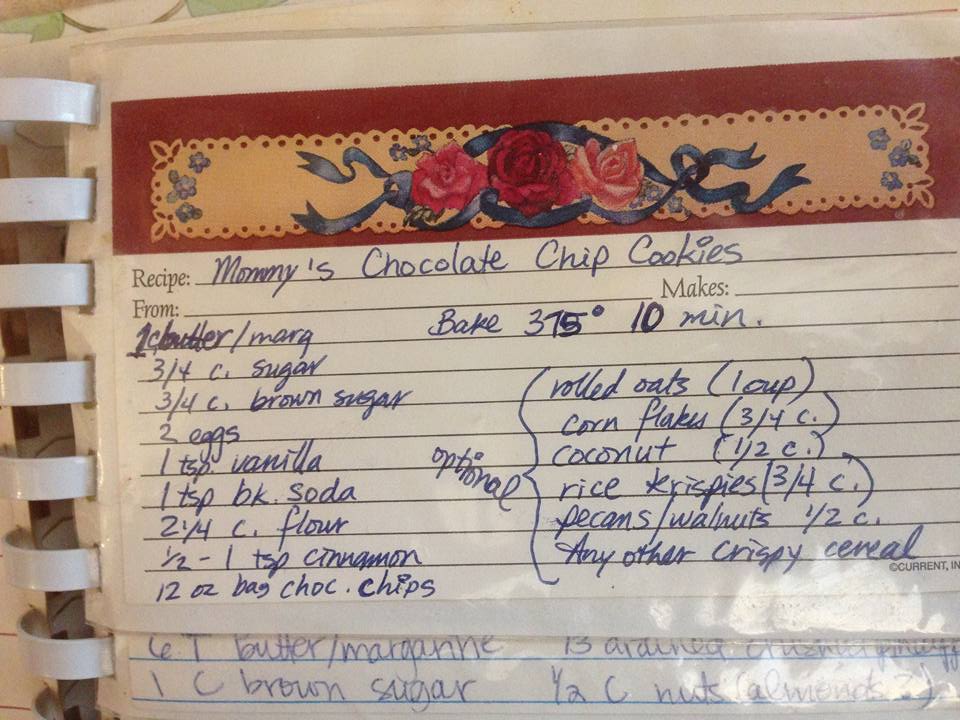 Recipe: Mommy's Chocolate Chip Cookies
From: Makes:
1c butter/marg Bake 375° 10 min.
3/4 c. sugar
3/4 c. brown sugar
2 eggs
1 tsp. vanilla
1 tsp bk. soda
2 1/4 c. flour
1/2 - 1 tsp cinnamon
12 oz bag choc. chips
optional
rolled oats (1 cup)
corn flakes (3/4 c.)
coconut (1/2 c.)
rice krispies (3/4 c.)
pecans/walnuts 1/2 c.
Any other crispy cereal
©CURRENT, IN
6 T butter/margarine 13 crushed
1 C brown sugar 1/2 C nuts (almonds?)